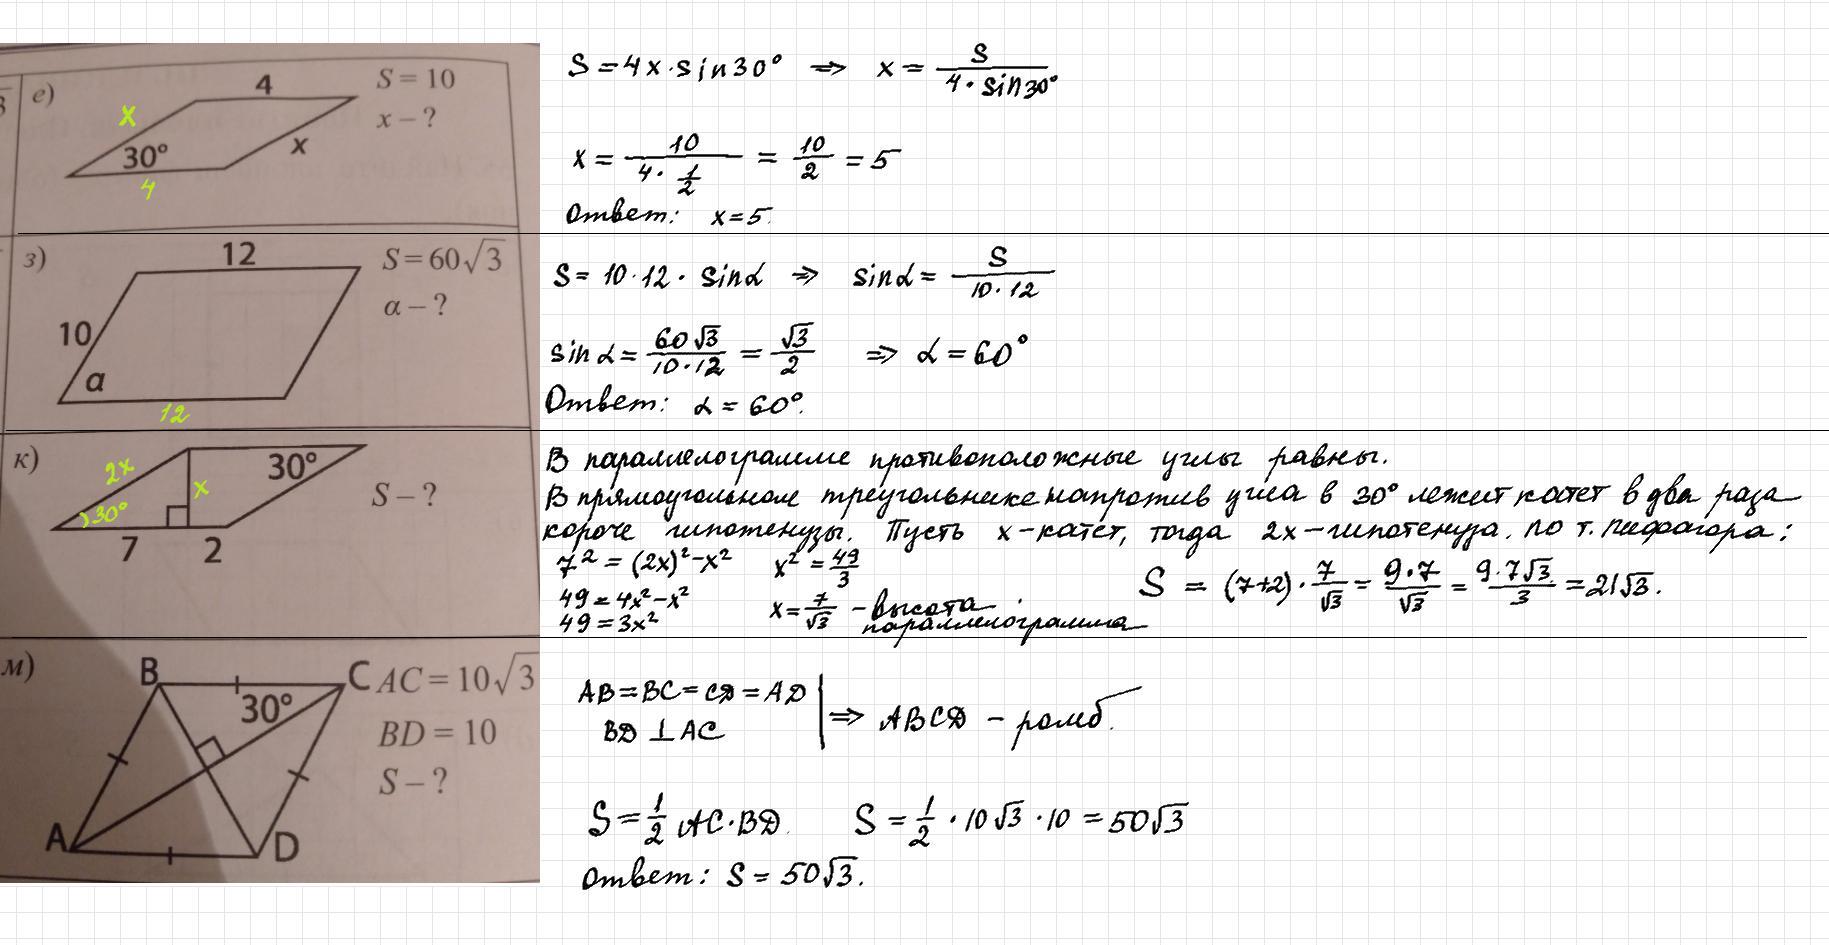 е)
4
x
30°
x
4
S = 10
x – ?
S = 4x · sin30° ⇒ x = S / (4 · sin30°)
x = 10 / (4 · 1/2) = 10/2 = 5
Ответ: x = 5.
з)
12
10
α
12
S = 60√3
α – ?
S = 10 · 12 · sinα ⇒ sinα = S / (10 · 12)
sinα = 60√3 / (10 · 12) = √3/2 ⇒ α = 60°
Ответ: α = 60°.
к)
2x
30°
x
30°
7
2
S – ?
В параллелограмме противоположные углы равны.
В прямоугольном треугольнике напротив угла в 30° лежит катет в два раза
короче гипотенузы. Пусть x – катет, тогда 2x – гипотенуза. по т. Пифагора:
7² = (2x)² – x²
49 = 4x² – x²
49 = 3x²
x² = 49/3
x = 7/√3 – высота
параллелограмма
S = (7+2) · 7/√3 = 9·7/√3 = 9·7√3/3 = 21√3.
м)
B
C
30°
A
D
AC = 10√3
BD = 10
S – ?
AB = BC = CD = AD
BD ⊥ AC
⇒ ABCD – ромб.
S = 1/2 AC · BD.
S = 1/2 · 10√3 · 10 = 50√3
Ответ: S = 50√3.